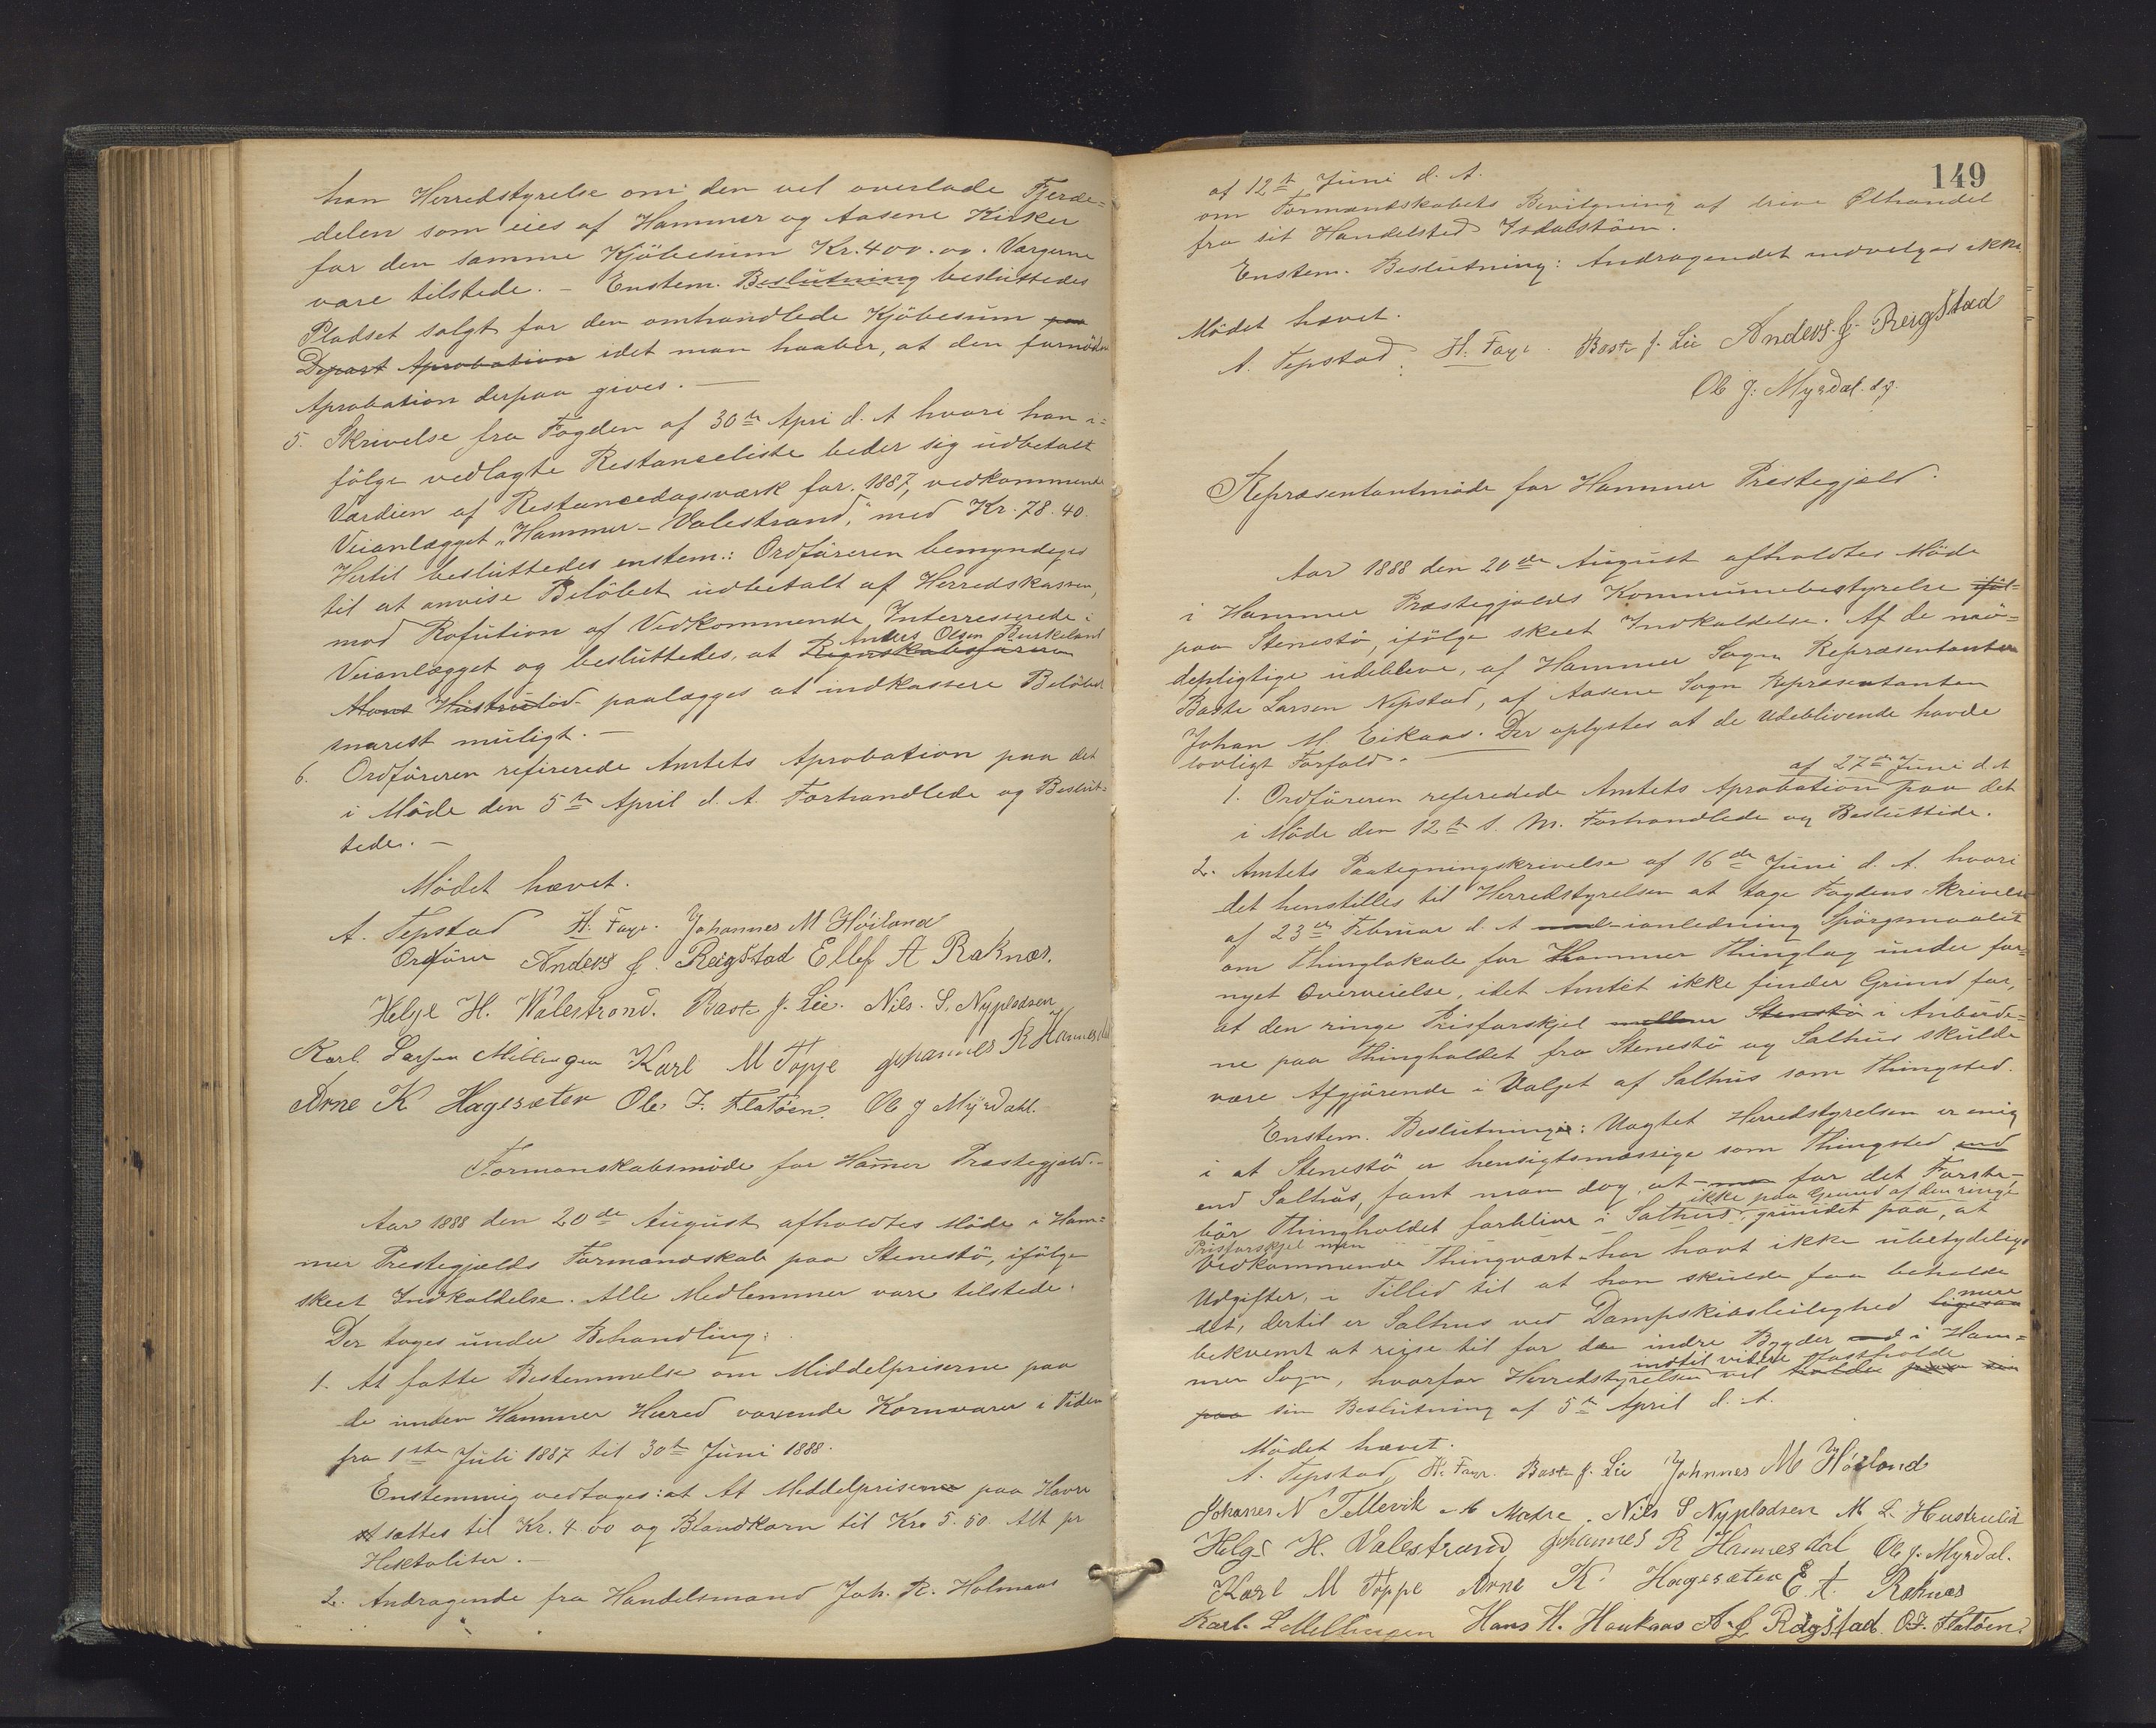 han Herredstyrelse om den vil overlade Fjerde=
delen som eies af Hammer og Aasene Kirker
for den samme Kjöbesum Kr. 400.00. Værgerne
vare tilstede. – Enstem. Beslutning besluttedes
Pladset solgt for den omhandlede Kjöbesum paa
Depart Aprobation idet man haaber, at den fornödne
Aprobation derpaa gives. —
5. Skrivelse fra Fogden af 30te Apri d. A hvori han i=
fölge vedlagte Restanceliste beder sig udbetalt
Værdien af Restancedagsværk for 1887, vedkommende
Veianlægget „Hammer – Valestrand," med Kr. 78.40.
Hertil besluttedes enstem.: Ordföreren bemyndiges
til at anvise Belöbet udbetalt af Herredskassen,
mod Rofution af Vedkommende Interresserede i
Anders Olsen Burkeland
Veianlægget og besluttedes, at Regnskabsföreren
Mons Hustrulid paalægges at indkassere Belöbet
snarest muligt. –
6. Ordföreren refirerede Amtets Aprobation paa det
i Möde den 5te April d. A. Forhandlede og Beslut=
tede. –
Mödet hævet.
A. Tepstad H. Faye. Johannes M Höiland
Ordförer Anders J. Reigstad Ellef A Raknæs.
Helge H. Walestrand. Baste J. Lie. Nils. S. Nypladsen
Karl. Larsen Mellingen Karl M Toppe Johannes R Hannesdal
Arne K Hagesæter Ole. J. Flatöen. Ole J Myrdahl.
Formanskabsmöde for Hamer Præstegjæld. –
Aar 1888 den 20de August afholdtes Möde i Ham=
mer Prestegjælds Formandskab paa Stenestö, ifölge
skeet Indkaldelse. Alle Medlemmer vare tilstede.
Der toges under Behandling:
1. At fatte Bestemmelse om Middelpriserne paa
de inden Hammer Herred voxende Kornvarer i Tiden
fra 1ste Juli 1887 til 30te Juni 1888.
Enstemmig vedtoges: at At Middelpriserne paa Havre
At sættes til Kr. 4.00 og Blandkorn til Kro 5.50. Alt pr
Hektoliter. –
2. Andragende fra Handelsmand Joh. R. Holmaas
149
af 12te Juni d. A.
om Formandskabets Bevilgning af drive Ölhandel
fra sit Handelsted Isdalstöen.
Enstem. Beslutning: Andragendet indvilges ikke.
Mödet hævet.
A. Tepstad. H. Faye. Baste J. Lie Anders J. Reigstad
Ole J. Myrdal.
Repræsentantmöde for Hammer Præstegjæld.
Aar 1888 den 20de August afholdtes Möde
i Hammer Præstegjælds Kommunebestyrelse iföl=
paa Stenestö, ifölge skeet Indkaldelse. Af de mö=
depligtige udebleve, af Hammer Sogn Repræsentanten
Baste Larsen Nepstad, af Aasene Sogn Repræsentanten
Johan M Eikaas. Der oplystes at de Udeblivende havde
lovligt Forfald. –
af 27de Juni d. A
1. Ordföreren referedede Amtets Aprobation paa det
i Möde den 12te s. M. Forhandlede og Besluttede.
2. Amtets Paategningskrivelse af 16de Juni d. A. hvori
det henstilles til Herredstyrelsen at tage Fogdens Skrivelse
af 23de Februar d. A med ianledning Spörgsmaalet
om Thinglokale for Hammer Thinglag under for=
nyet Overveielse, idet Amtet ikke finder Grund for,
at den ringe Prisforskjel mellem Stenestö i Anbude=
ne paa Thingholdet fra Stenestö og Salhus skulde
være Afgjörende i Valget af Salhus som Thingsted.
Enstem. Beslutning: Uagtet Herredstyrelsen er enig
i at Stenestö er hensigtsmæssige som Thingsted end
end Salhus, fant man dog at man for det Förste
ikke paa Grund af den ringe
bör Thingholdet forblive i Salhus, grundet paa, at
Prisforskjel men
Vedkommende Thingvært har havt ikke ubetydelige
Udgifter, i Tillid til at han skulde faa beholde
det, dertil er Salhus ved Dampskibsleilighed ligesaa mere
bekvemt at reise til for den indre Bygder ved i Ham=
indtil videre fastholde
mer Sogn, hvorfor Herredstyrelsen vil holde paa sin
paa sin Beslutning af 5te April d. A.
Mödet hævet.
A. Tepstad, H. Faye. Baste J. Lie Johnnes M Höiland
Johanes N Tellevik M Matre. Nils S Nypladsen M. L. Hustrulid
Helge H. Valestrand Johannes R Hannesdal Ole J. Myrdal.
Karl M Toppe Arne K. Hagesæter E. A. Raknæs
Karl. L Mellingen Hans H. Haukaas A. J. Reigstad. O. J. Flatöen.